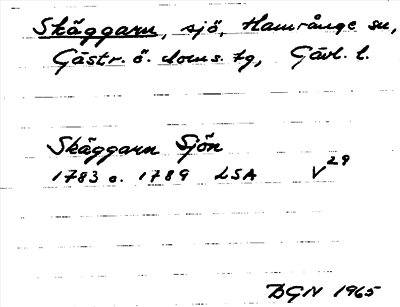 Skäggarn, sjö, Hamrånge sn,
Gästr. ö. doms. tg, Gävl. l.
Skäggarn Sjön
1783 o. 1789 LSA V29
DGN 1965